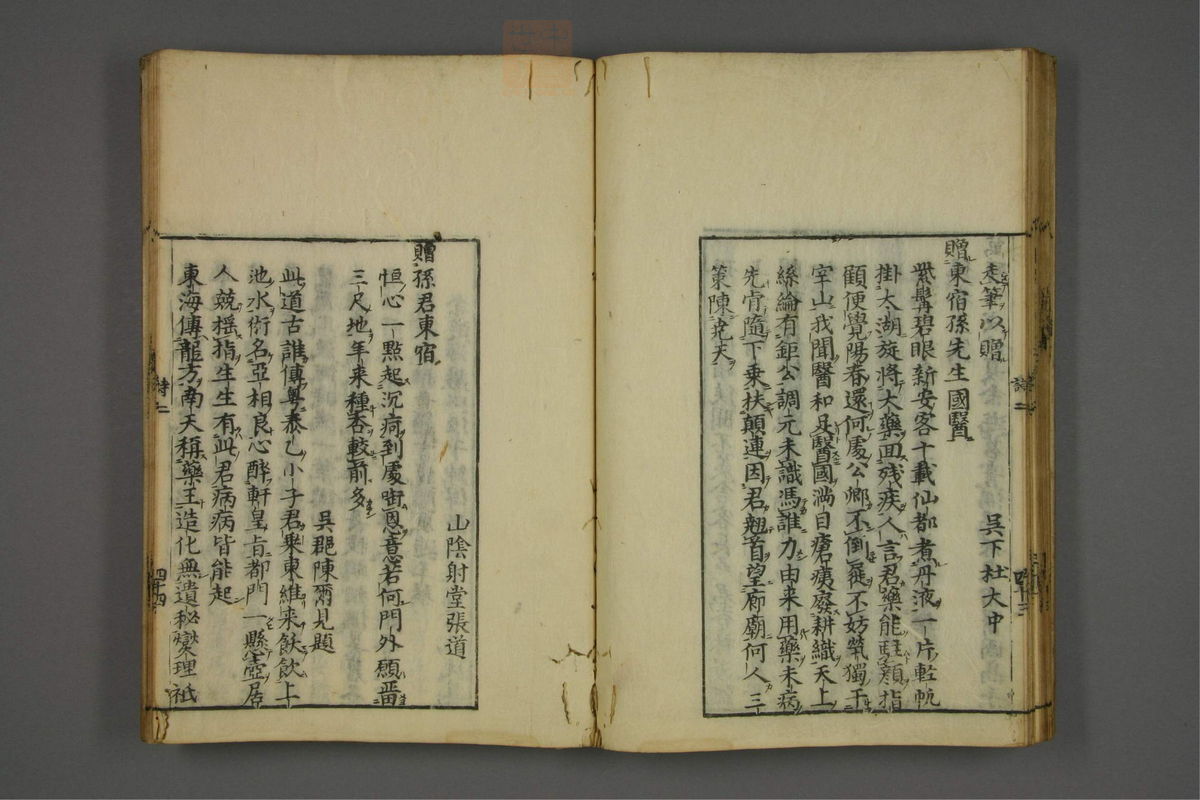 走筆以贈
吳下杜大中
贈東宿孫先生國醫
紫髯碧眼新安客十載仙都煮丹液一片輕帆
掛太湖旋將大藥囬残疾人言君藥能駐顏指
顧便覺陽春還何處公卿不倒屣不妨煢獨干
宰山我聞醫和足醫國滿目瘡痍廢耕織天上
絲綸有鉅公調元未識馮誰力由来用藥未病
先膏隨下乗扶顛連因君翹首望廊廟何人三
策陳堯天
詩二
四十三
山陰射堂張道
贈孫君東宿
恒心一點起沉痾到處啣恩意若何門外願畱
三尺地年来種杏較前多
吳郡陳爾見題
此道古誰傳粤泰乙小子君乗東維来飫飲上
池水術名亞相良心醉軒皇肯都門一懸壺居
人競揺指生生有此君病病皆能起
東海傳龍方南天稱藥王造化無遺秘爕理祗
詩二
四十四